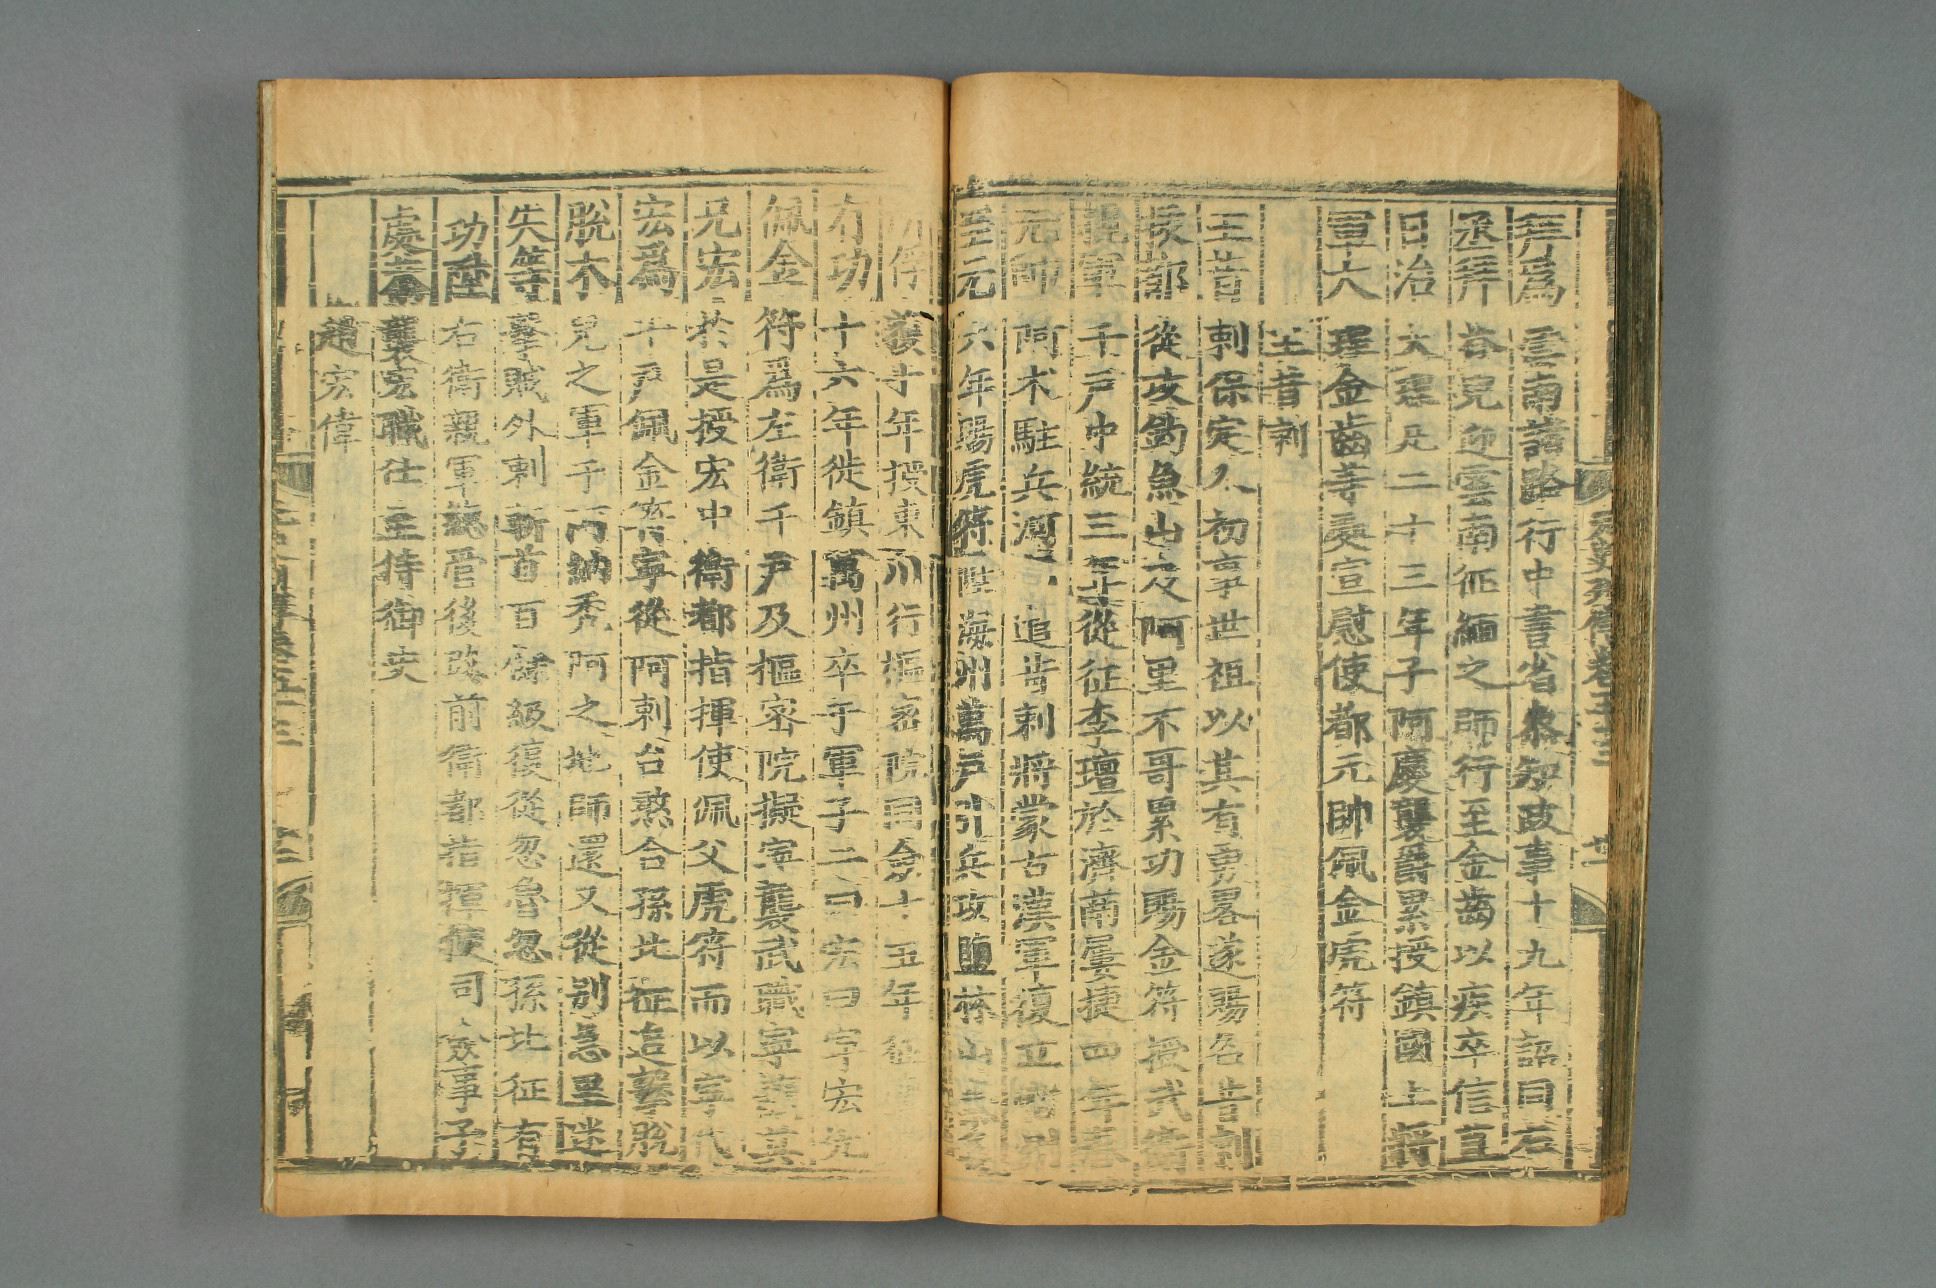 元史列傳卷五十三
拜為雲南諸路行中書省參知政事十九年詔同右
丞拜答兒迎雲南征緬之師行至金齒以疾卒信苴
日治大理凡二十三年子阿慶襲爵累授鎮國上將
軍大理金齒等處宣慰使都元帥佩金虎符
王昔剌
王昔剌保定人初事世祖以其有勇畧遂賜名昔剌
拔都從攻釣魚山及阿里不哥累功賜金符授武衛
親軍千戶中統三年從征李璮於濟南屢捷四年春
元帥阿朮駐兵河 追昔剌將蒙古漢軍復立 
至元六年賜虎符陞海州萬戶引兵攻鹽林山
所俘獲 年授東川行樞密院同僉十五年
有功十六年徙鎮萬州卒于軍子二曰宏曰宇宏先
佩金符為左衛千戶及樞密院擬宇襲武職宇讓其
兄宏於是授宏中衛都指揮使佩父虎符而以宇代
宏為千戶佩金符宇從阿剌台憨合孫北征追襲脫
脫木兒之軍于阿納禿阿之地師還又從別急里迷
失等擊賊外剌斬首百餘級復從忽魯忽孫北征有
功陞右衛親軍總管後改前衛都指揮使司僉事子
處恭襲宏職仕至侍御史
趙宏偉